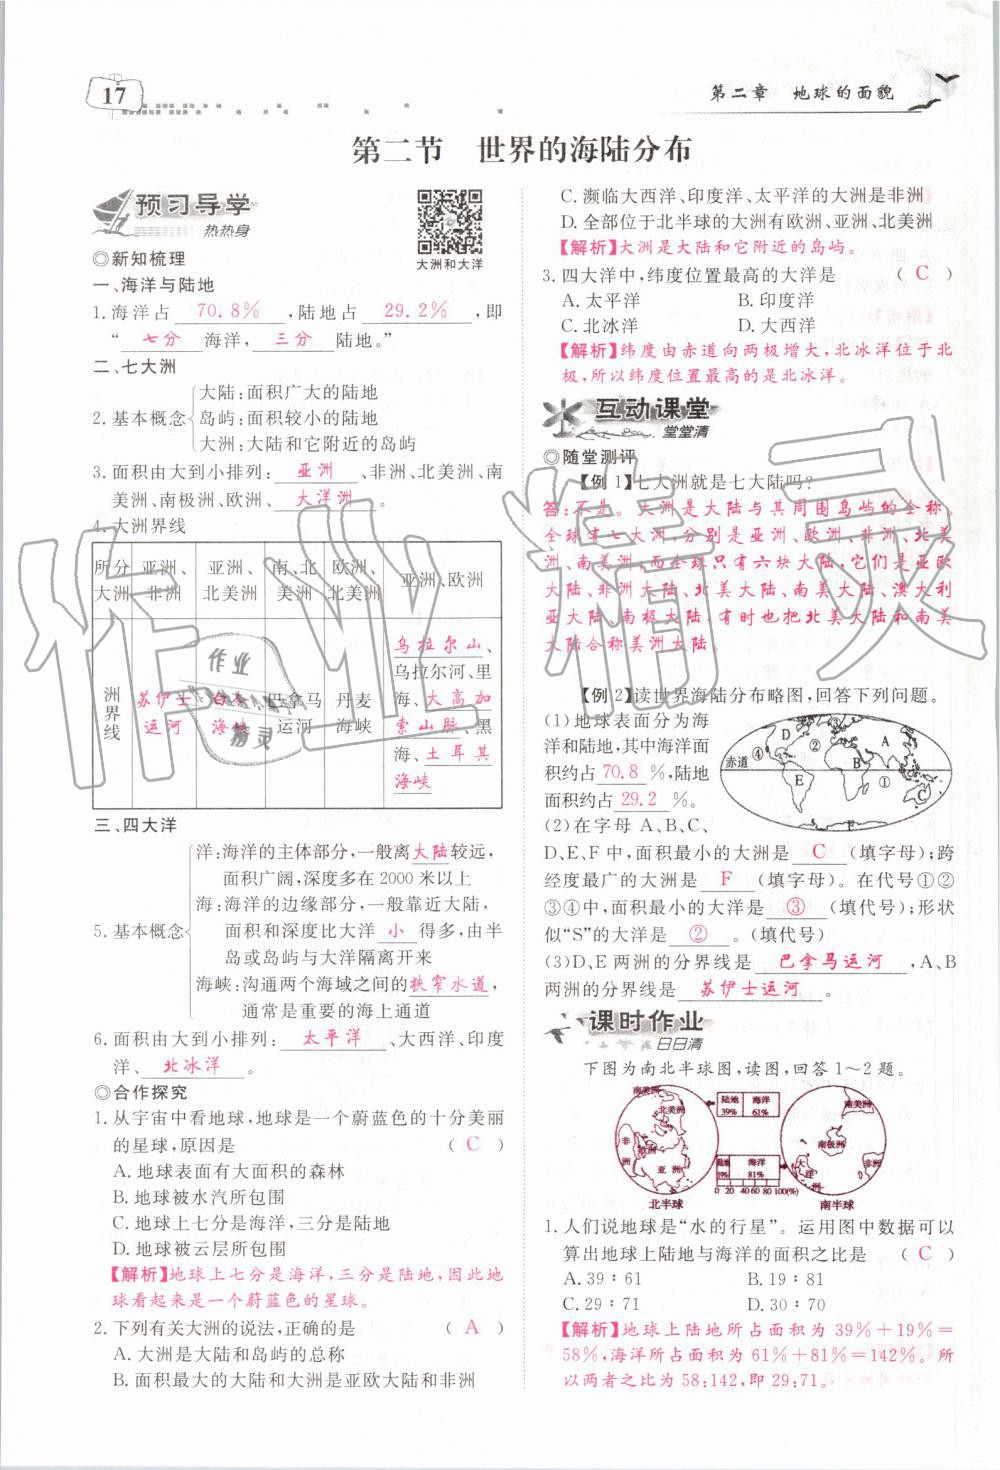 17
第二章　地球的面貌
第二节　世界的海陆分布
预习导学
热热身
大洲和大洋
◎新知梳理
一、海洋与陆地
1.海洋占 70.8% ,陆地占 29.2% ,即
“ 七分 海洋, 三分 陆地。”
二、七大洲
2.基本概念
大陆:面积广大的陆地
岛屿:面积较小的陆地
大洲:大陆和它附近的岛屿
3.面积由大到小排列: 亚洲 、非洲、北美洲、南
美洲、南极洲、欧洲、 大洋洲 。
4.大洲界线
所分大洲 亚洲、非洲 亚洲、北美洲 南、北美洲 欧洲、北美洲 亚洲、欧洲
洲界线 苏伊士运河 白令海峡 巴拿马运河 丹麦海峡 乌拉尔山、乌拉尔河、里海、大高加索山脉、黑海、土耳其海峡
三、四大洋
5.基本概念
洋:海洋的主体部分,一般离大陆较远,
面积广阔,深度多在2000米以上
海:海洋的边缘部分,一般靠近大陆,
面积和深度比大洋 小 得多,由半
岛或岛屿与大洋隔离开来
海峡:沟通两个海域之间的狭窄水道,
通常是重要的海上通道
6.面积由大到小排列: 太平洋 、大西洋、印度
洋、 北冰洋 。
◎合作探究
1.从宇宙中看地球,地球是一个蔚蓝色的十分美丽
的星球,原因是 ( C )
A.地球表面有大面积的森林
B.地球被水汽所包围
C.地球上七分是海洋,三分是陆地
D.地球被云层所包围
【解析】地球上七分是海洋,三分是陆地,因此地
球看起来是一个蔚蓝色的星球。
2.下列有关大洲的说法,正确的是 ( A )
A.大洲是大陆和岛屿的总称
B.面积最大的大陆和大洲是亚欧大陆和非洲
C.濒临大西洋、印度洋、太平洋的大洲是非洲
D.全部位于北半球的大洲有欧洲、亚洲、北美洲
【解析】大洲是大陆和它附近的岛屿。
3.四大洋中,纬度位置最高的大洋是 ( C )
A.太平洋 B.印度洋
C.北冰洋 D.大西洋
【解析】纬度由赤道向两极增大,北冰洋位于北
极,所以纬度位置最高的是北冰洋。
互动课堂
堂堂清
◎随堂测评
【例1】七大洲就是七大陆吗?
答:不是。大洲是大陆与其周围岛屿的全称。
全球有七大洲,分别是亚洲、欧洲、非洲、北美
洲、南美洲;而全球只有六块大陆,它们是亚欧
大陆、非洲大陆、北美大陆、南美大陆、澳大利
亚大陆、南极大陆。有时也把北美大陆和南美
大陆合称美洲大陆。
【例2】读世界海陆分布略图,回答下列问题。
(1)地球表面分为海
洋和陆地,其中海洋面
积约占 70.8 %,陆地
面积约占 29.2 %。
(2)在字母A、B、C、
D、E、F中,面积最小的大洲是 C (填字母);跨
经度最广的大洲是 F (填字母)。在代号①②
③④中,面积最小的大洋是 ③ (填代号);形状
似“S”的大洋是 ② 。(填代号)
(3)D、E两洲的分界线是 巴拿马运河 ,A、B
两洲的分界线是 苏伊士运河 。
赤道 ④ D ② ③ A B E ① C F
课时作业
日日清
下图为南北半球图,读图,回答1～2题。
南美洲 北美洲 非洲 亚洲
陆地 39% 海洋 61%
陆地 19% 海洋 81%
0 20 40 60 80 100(%)
南美洲 南极洲 大洋洲 非洲
北半球
南半球
1.人们说地球是“水的行星”。运用图中数据可以
算出地球上陆地与海洋的面积之比是 ( C )
A.39∶61 B.19∶81
C.29∶71 D.30∶70
【解析】地球上陆地所占面积为39%+19%=
58%,海洋所占面积为61%+81%=142%。所
以两者之比为58:142,即29:71。
作业精灵
作业
精灵